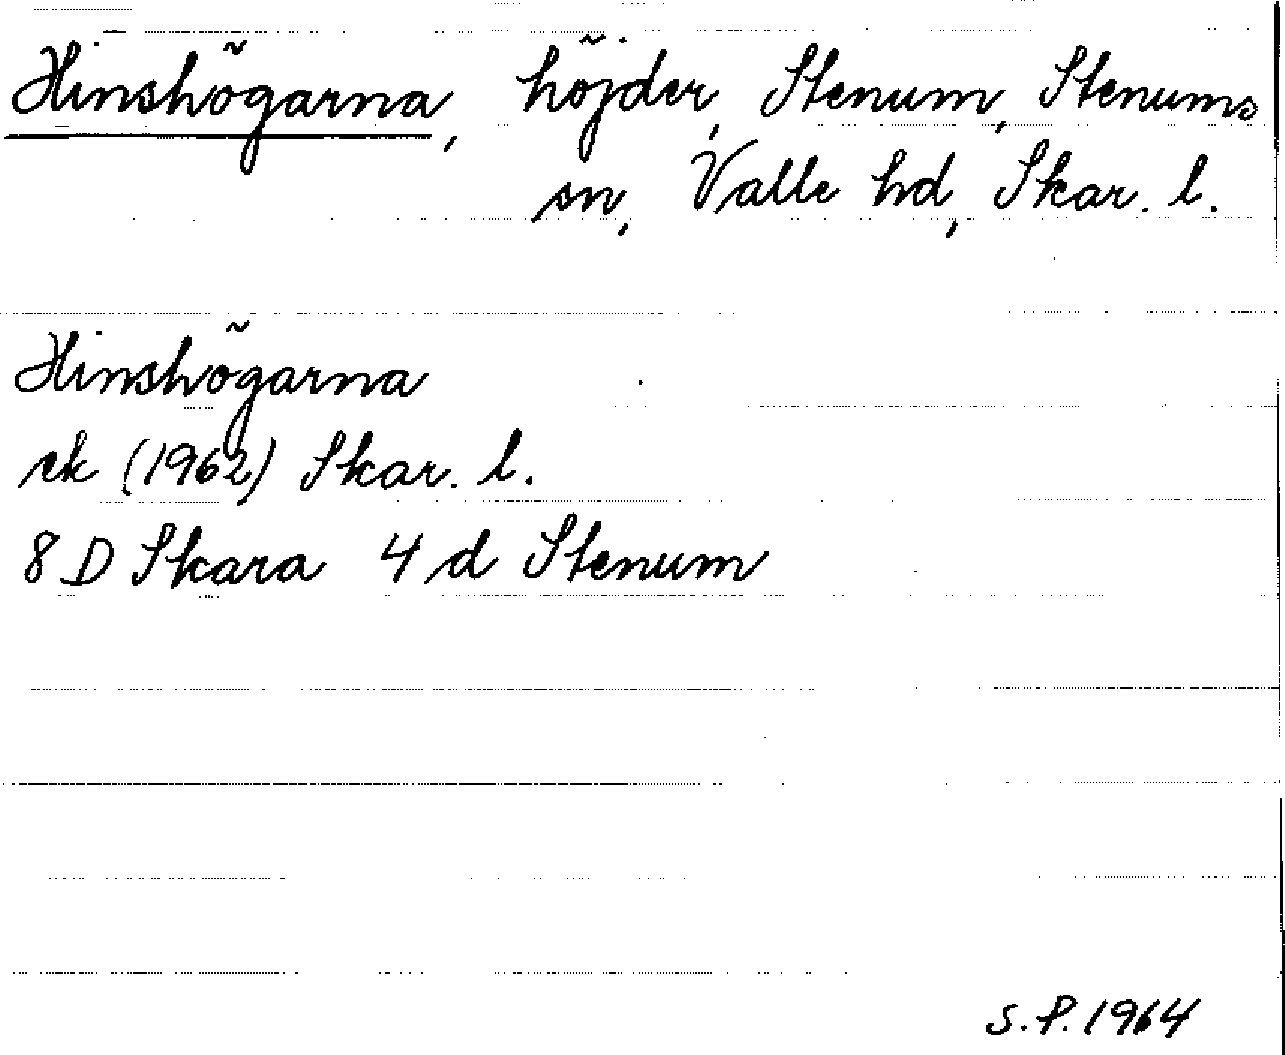 Hinshögarna, höjder, Stenum, Stenums
sn, Valle hd, Skar. l.
Hinshögarna
ek (1962) Skar. l.
8 D Skara 4 d Stenum
S.P. 1964